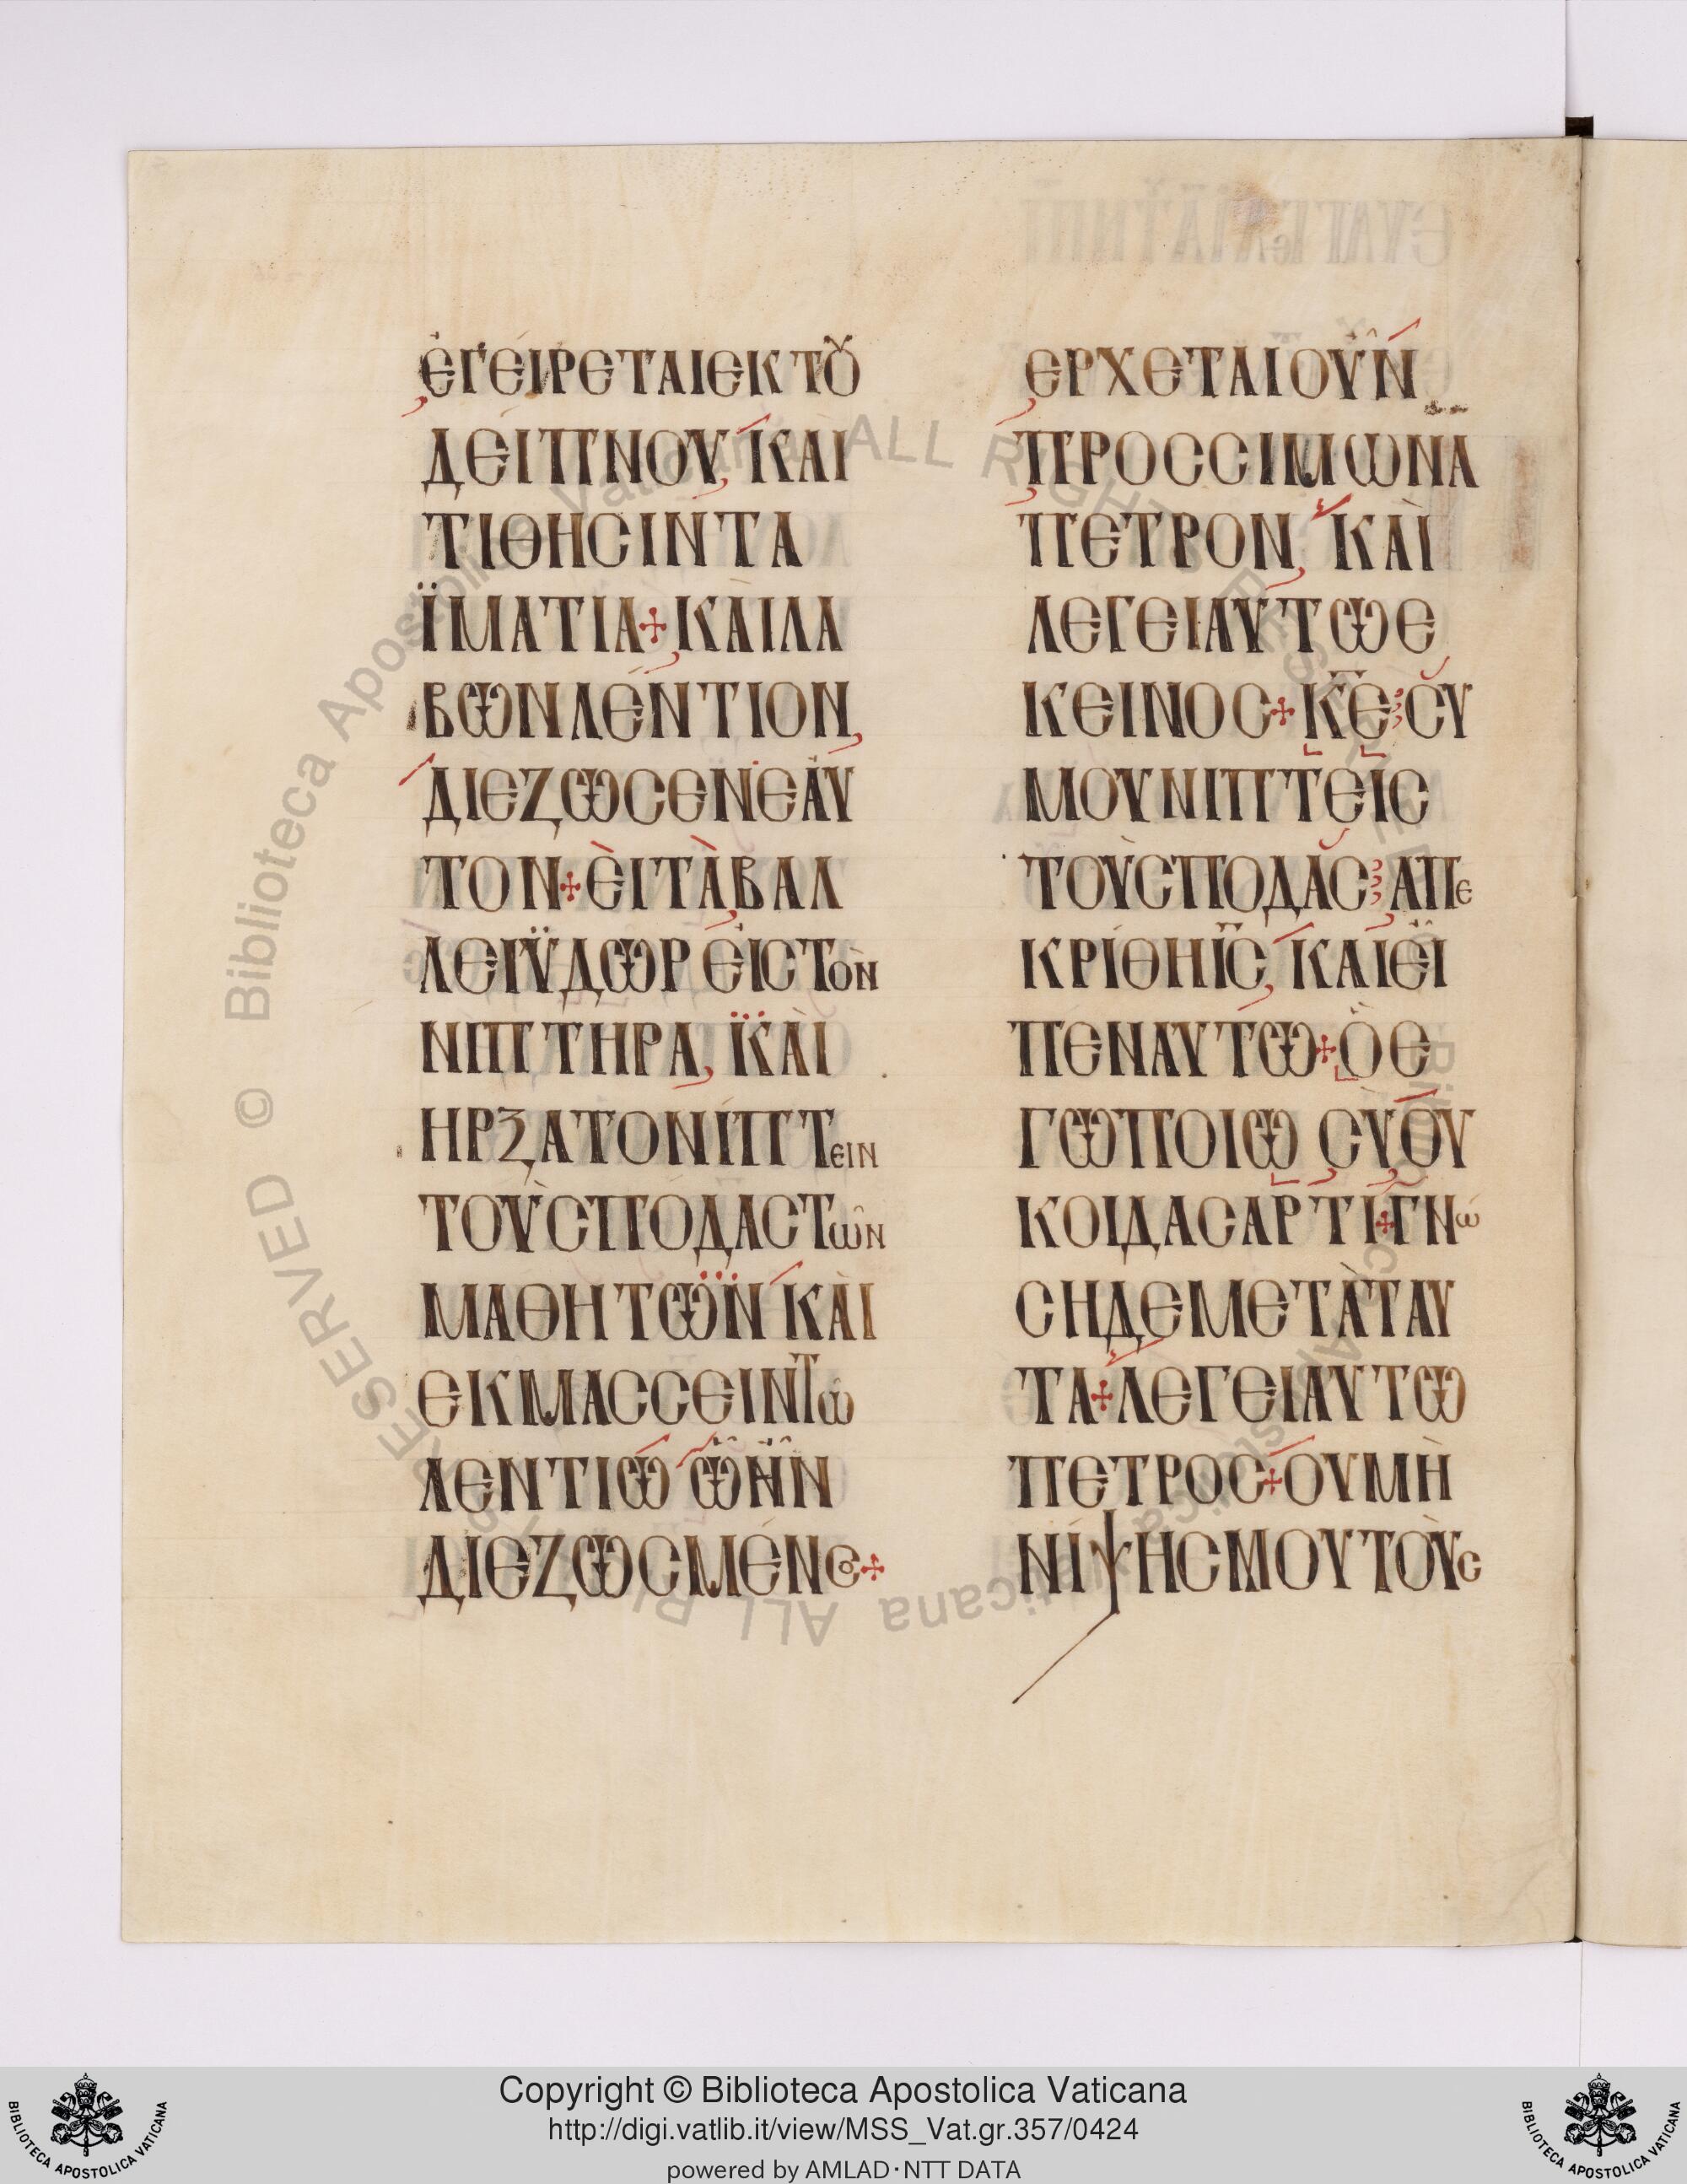 ἐγείρεται εκ τȣ
δείπνου, και
τίθησιν τὰ
ϊμάτια + καὶ λα
βὼν λέντιον,
διέζωσεν ἑαυ
τόν + εἶτα βάλ
λει ϋδωρ εἰς τὸν
νιπτῆρα, καὶ
ηρξατο νίπτειν
τοὺς πόδας τῶν
μαθητῶν καὶ
εκμάσσειν τῶ
λεντίω ὧ ἦν
διεζωσμένος +
ερχεται οὖν
προς σιμωνα
πετρον, καὶ
λεγει αυτω ε
κεινος + κ̅ε̅ σύ
μου νιπτεις
τοὺς πόδας απε
κρίθη ι̅ς̅, και εἶ
πεν αυτω + ὃ ε
γω ποιω συ ου
κ οιδας αρτι + γνώ
ση δε μετὰ ταυ
τα + λεγει αυτω
πετρος + ου μὴ
νίψης μου τοὺς
Copyright © Biblioteca Apostolica Vaticana
http://digi.vatlib.it/view/MSS_Vat.gr.357/0424
powered by AMLAD·NTT DATA
BIBLIOTECA APOSTOLICA VATICANA
BIBLIOTECA APOSTOLICA VATICANA
© Biblioteca Apostolica Vaticana ALL RIGHTS RESERVED